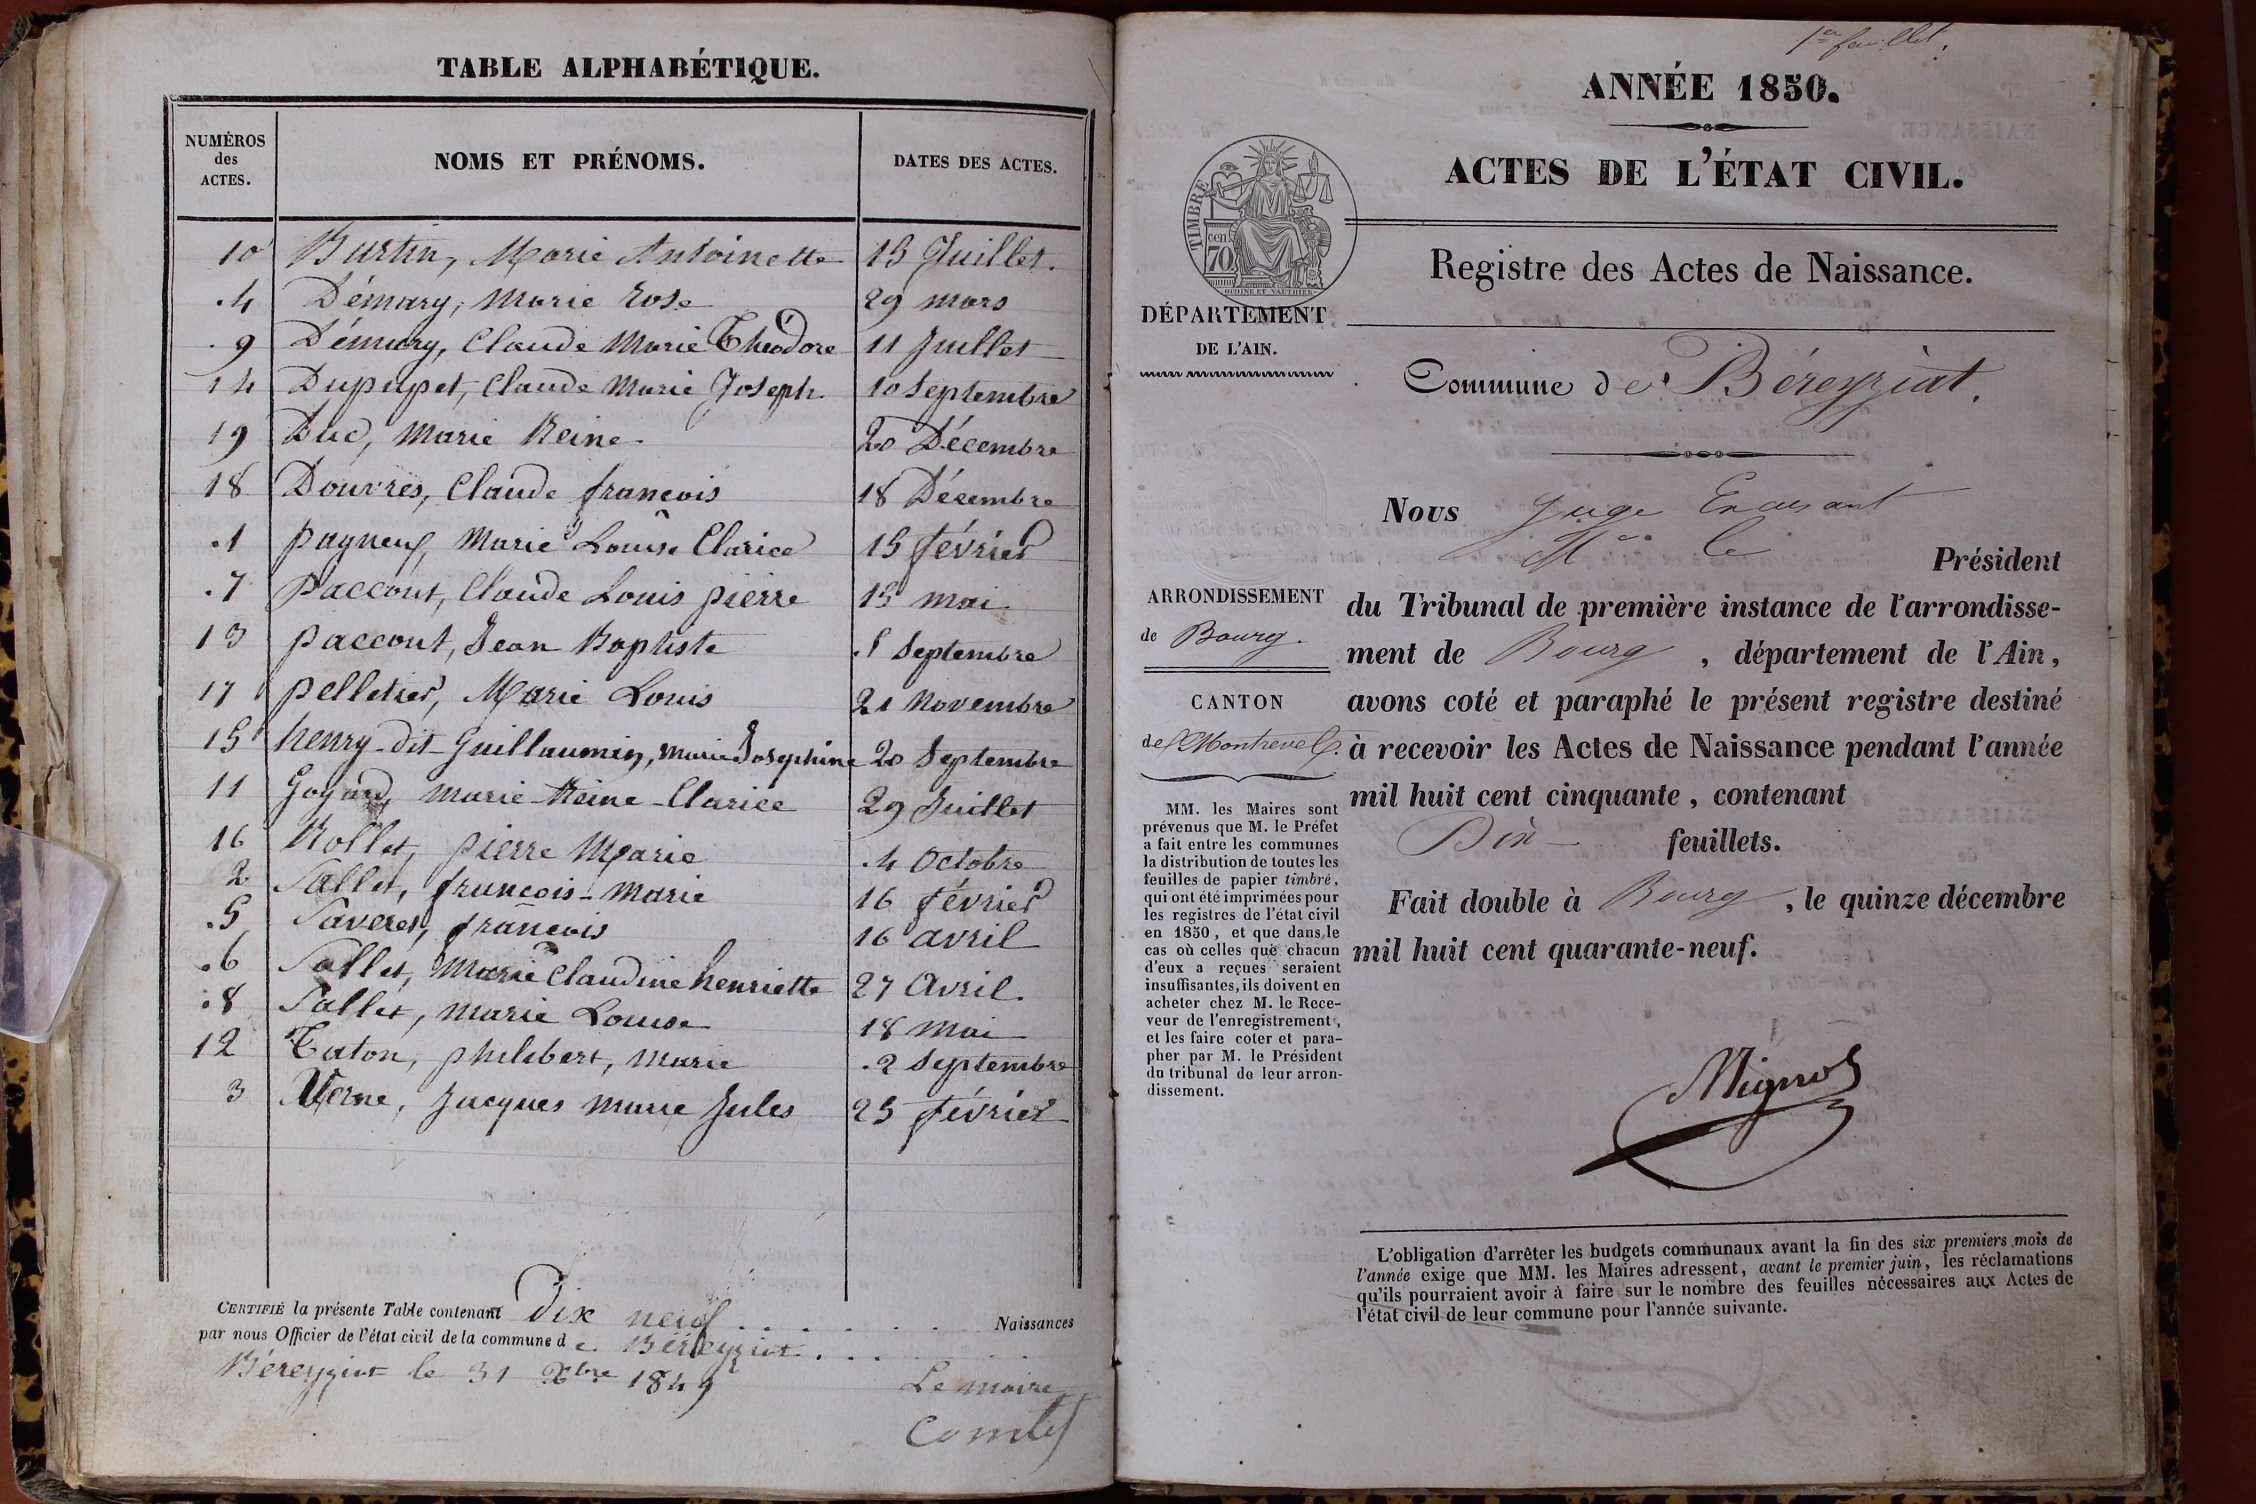 TABLE ALPHABÉTIQUE.
NUMÉROS des ACTES. NOMS ET PRÉNOMS. DATES DES ACTES.
10 Burtin, Marie Antoinette 15 Juillet.
.4 Démary, Marie Rose 29 mars
.9 Démary, Claude Marie Théodore 11 Juillet
14 Dupupet, Claude Marie Joseph. 10 Septembre
19 Duc, Marie Reine 20 Décembre
18 Douvres, Claude françois 18 Décembre
.1 Marie Louise Clarice 15 février
.7 Paccout, Claude Louis pierre 15 mai
13 paccout, Jean Baptiste .5 Septembre
17 pelletier, Marie Louis 21 Novembre
15 henry-dit-Guillaumin, Marie Josephine 20 Septembre
11 Goyard, Marie Reine Clarice 29 Juillet
16 Rollet, pierre Marie .4 Octobre
2 Sallet, françois-Marie 16 février
.5 Saveret, françois 16 avril
.6 Sallet, Marie Claudine henriette 27 Avril.
.8 Sallet, Marie Louise 18 Mai
12 Taton, philibert, Marie .2 Septembre
3 Verne, Jacques Marie Jules 25 février
CERTIFIÉ la présente Table contenant Dix neuf Naissances
par nous Officier de l'état civil de la commune de Béreyziat
Béreyziat le 31 Xbre 1849
Le maire
Comtet
1er feuillet.
ANNÉE 1850.
ACTES DE L'ÉTAT CIVIL.
TIMBRE
cen. 70
Registre des Actes de Naissance.
DÉPARTEMENT
DE L'AIN.
Commune de Béreyziat.
Nous Juge
Président
du Tribunal de première instance de l'arrondisse-
ment de Bourg, département de l'Ain,
avons coté et paraphé le présent registre destiné
à recevoir les Actes de Naissance pendant l'année
mil huit cent cinquante, contenant
Dix feuillets.
Fait double à Bourg, le quinze décembre
mil huit cent quarante-neuf.
ARRONDISSEMENT
de Bourg.
CANTON
de Montrevel.
MM. les Maires sont
prévenus que M. le Préfet
a fait entre les communes
la distribution de toutes les
feuilles de papier timbré,
qui ont été imprimées pour
les registres de l'état civil
en 1850, et que dans le
cas où celles que chacun
d'eux a reçues seraient
insuffisantes, ils doivent en
acheter chez M. le Rece-
veur de l'enregistrement,
et les faire coter et para-
pher par M. le Président
du tribunal de leur arron-
dissement.
L'obligation d'arrêter les budgets communaux avant la fin des six premiers mois de
l'année exige que MM. les Maires adressent, avant le premier juin, les réclamations
qu'ils pourraient avoir à faire sur le nombre des feuilles nécessaires aux Actes de
l'état civil de leur commune pour l'année suivante.